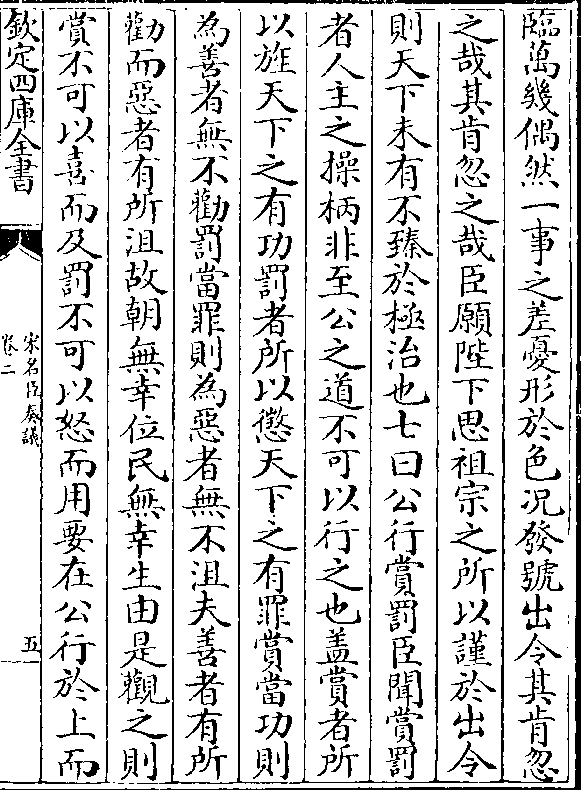 臨萬幾偶然一事之差憂形於色况發號出令其肯忽
之哉其肯忽之哉臣願陛下思祖宗之所以謹於出令
則天下未有不臻於極治也七曰公行賞罰臣聞賞罰
者人主之操柄非至公之道不可以行之也盖賞者所
以旌天下之有功罰者所以懲天下之有罪賞當功則
為善者無不勸罰當罪則為惡者無不沮夫善者有所
勸而惡者有所沮故朝無幸位民無幸生由是觀之則
賞不可以喜而及罰不可以怒而用要在公行於上而
欽定四庫全書
宋名臣奏議
卷二
五